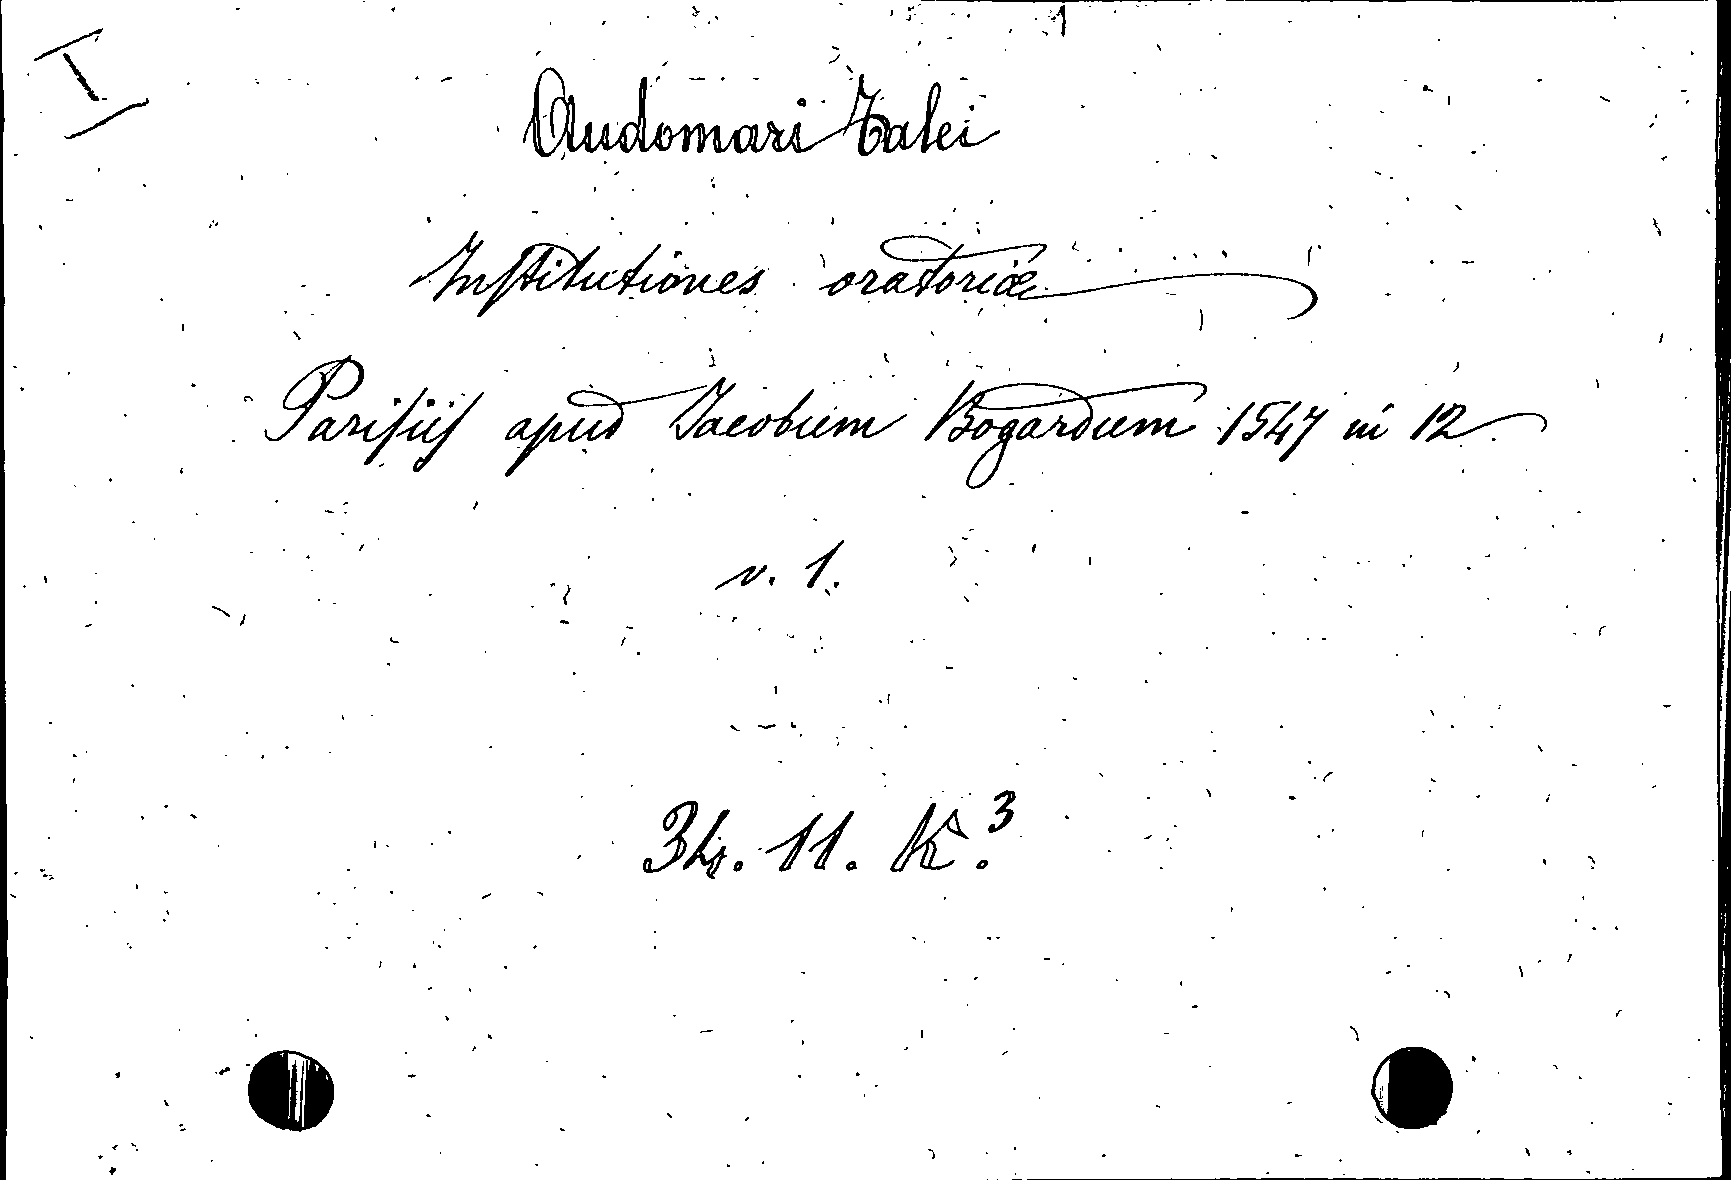 I
Audomari Talei
Institutiones oratoriæ
Parisiis apud Jacobum Bogardum 1547 in 12
v. 1.
34. 11. K.³